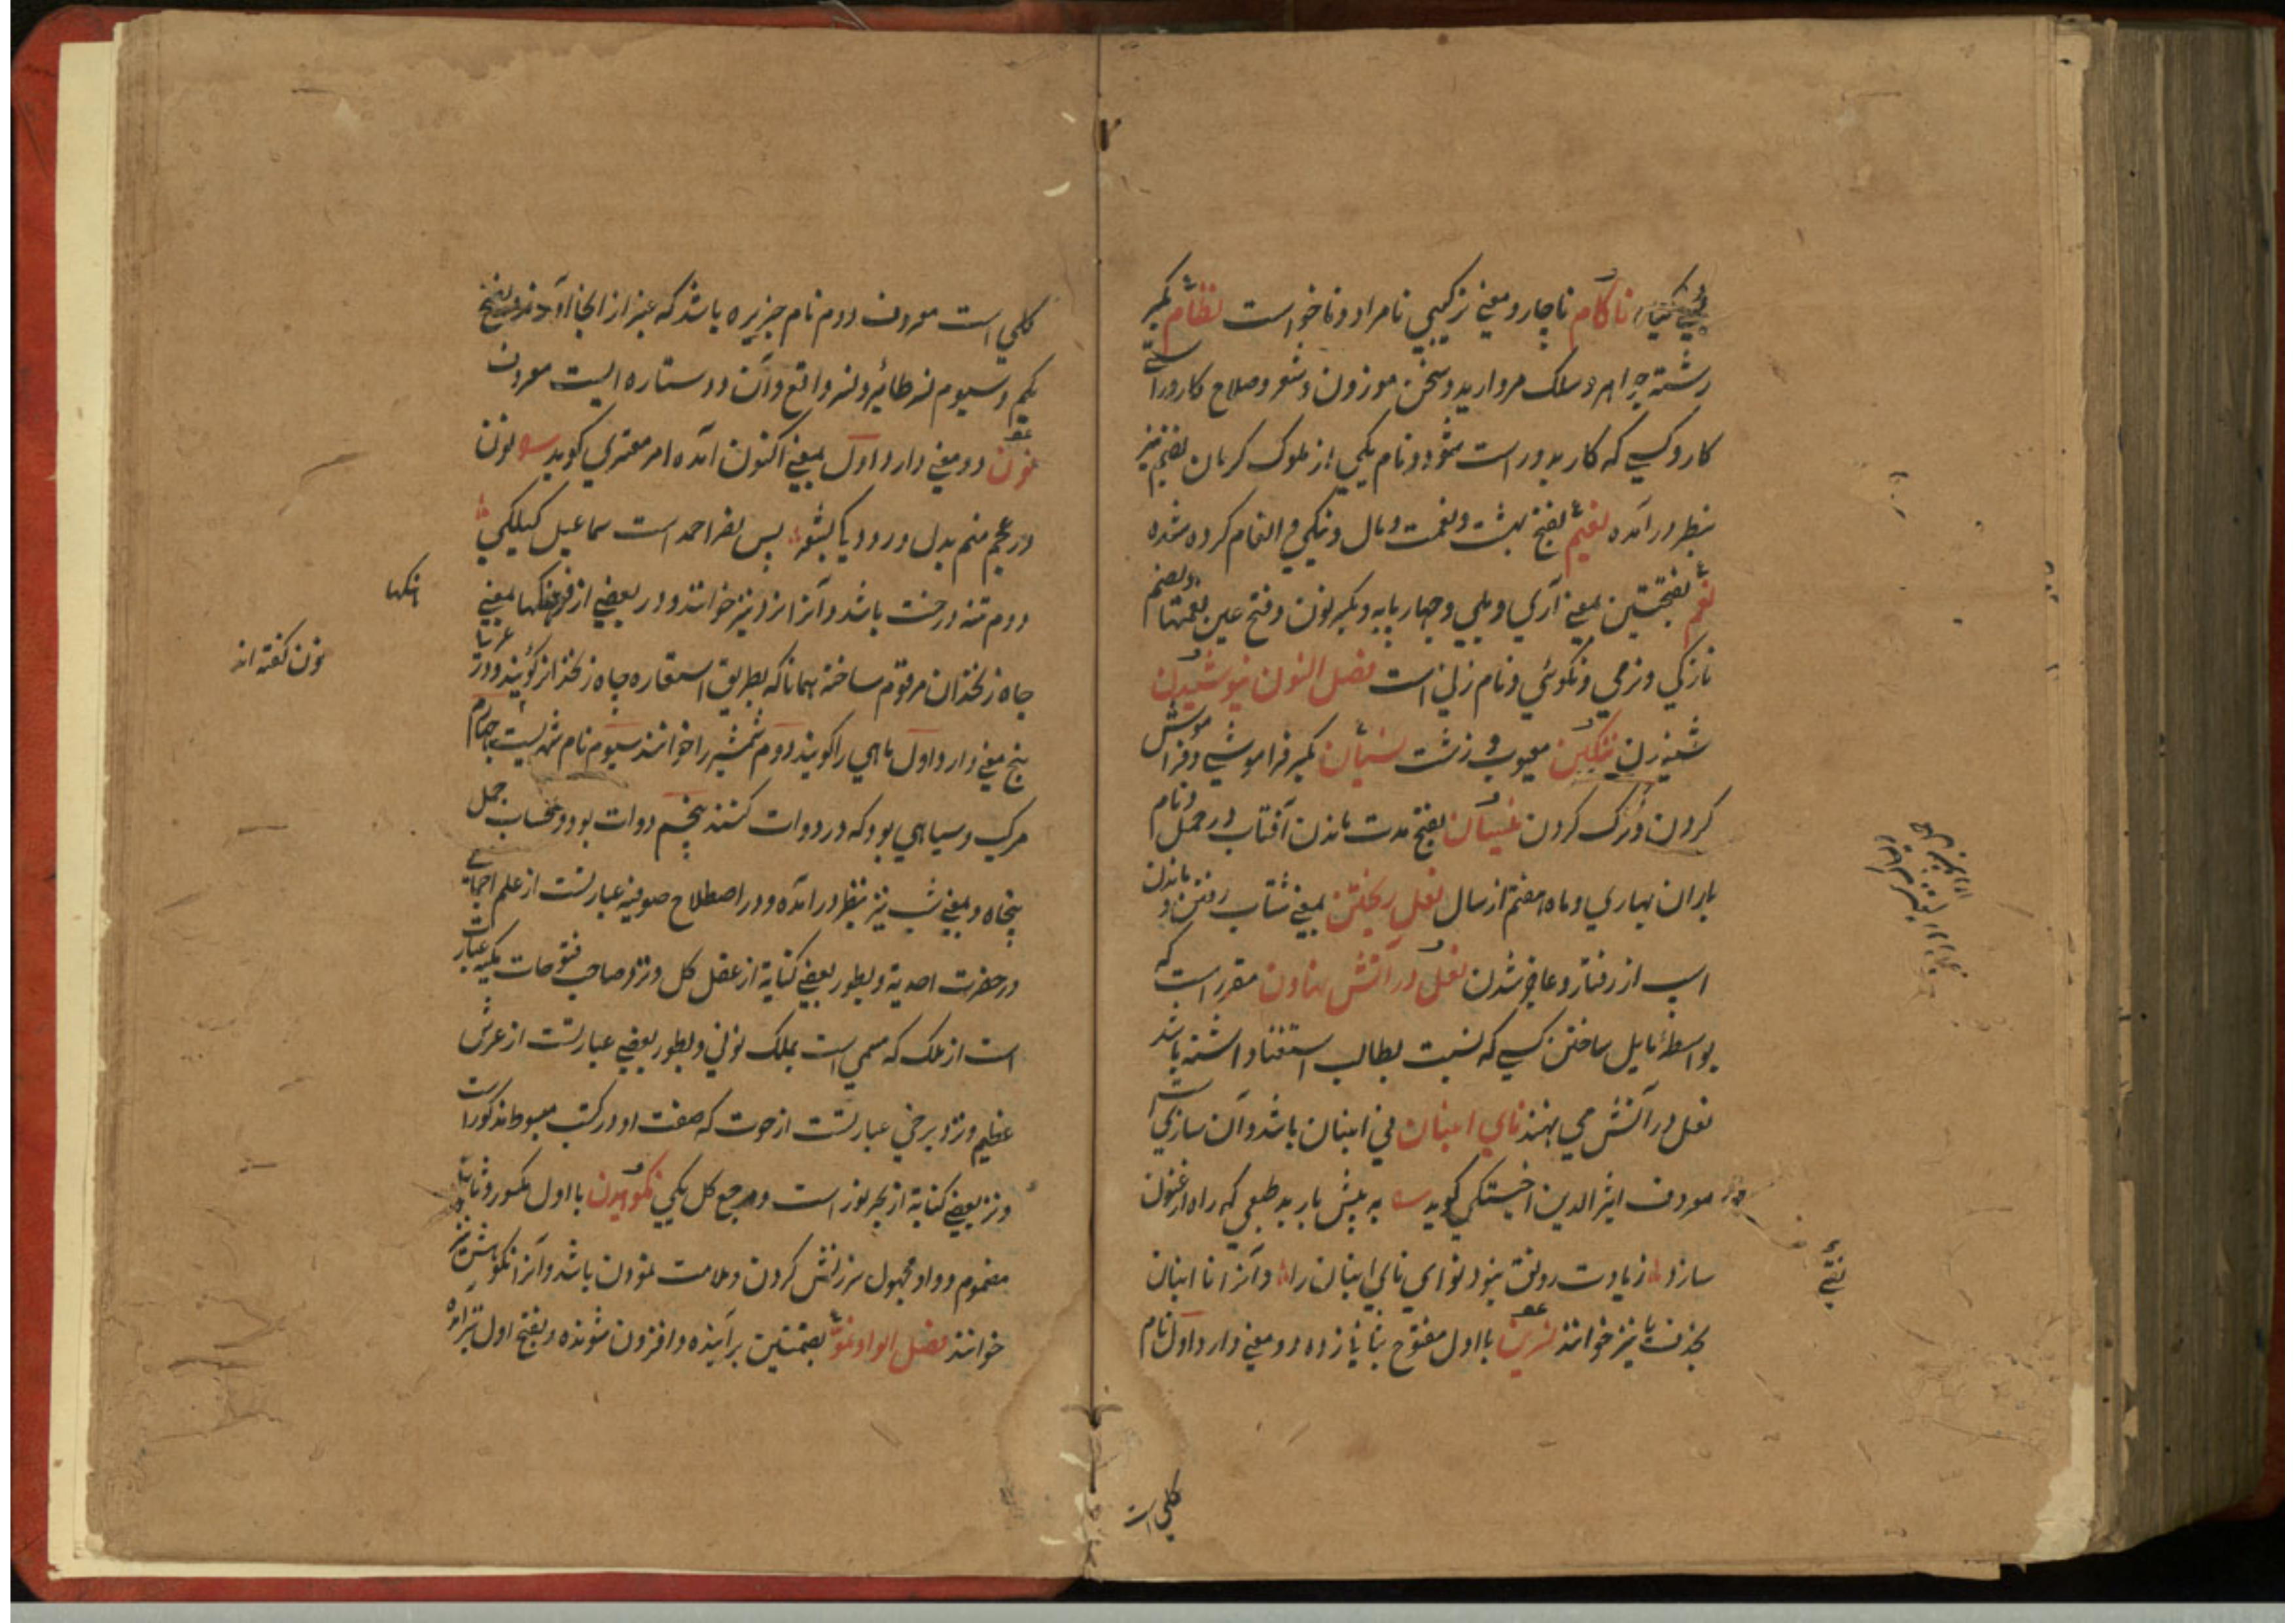 ناکام ناچار و معنی ترکیبی نامراد و ناخواست نظام بکسر
رشته جواهر و سلک مروارید و سخن موزون و شعر و صلاح کار و راستی
کار و کسی که کار بدو راست شود و نام یکی از ملوک کرمان بضم نیز
بنظر درآمده نعیم بفتح بهشت و نعمت و مال و نیکی و انعام کرده شده
نعم بفتحتین بمعنی آری و بلی و چهار پایه و بکسر نون و فتح عین نعمتها و بضم
نازکی و نرمی و نکوئی و نام زنی است فصل النون نیوشیدن
شنیدن ننگین معیوب و زشت نسیان بکسر فراموشی و فراموش
کردن و ترک کردن نیسان بفتح مدت ماندن آفتاب در حمل و نام
باران بهاری و ماه هفتم از سال نعل ریختن بمعنی شتاب رفتن و ماندن
اسپ از رفتار و عاجز شدن نعل در آتش نهادن مقرر است که
بواسطهٔ مایل ساختن کسی که نسبت بطالب استغنا داشته باشد
نعل در آتش می نهند نای انبان نی انبان باشد و آن سازی است
معروف اثیر الدین اخسیکتی گوید به پیش باربد طبعی که راه ارغنون
سازد زیادت رونقی نبود نوای نای انبان را و آنرا نا انبان
بحذف یا نیز خوانند نسرین با اول مفتوح بثانی زده دو معنی دارد اول نام
کلی است
کلی است معروف دوم نام جزیره باشد که عنبر از انجا آورند و بفتح
یکم و سیوم نسر طائر و نسر واقع و آن دو ستاره ایست معروف
نون دو معنی دارد اول بمعنی اکنون آمده امیر معزی گوید نون
در عجم منم بدل رودیا کیشور پس نصر احمد است سماعیل کیلکی
دوم تنه درخت باشد و آنرا نرد نیز خوانند و در بعضی از فرهنگها بمعنی
چاه زنخدان مرقوم ساخته همانا که بطریق استعاره چاه زنخدانرا گویند و در عربی
پنج معنی دارد اول ماهی را گویند دوم شمشیر را خوانند سیوم نام شهریست چهارم
مرکب و سیاهی بود که در دوات کنند پنجم دوات بود و بحساب جمل
پنجاه و بمعنی شب نیز بنظر درآمده و در اصطلاح صوفیه عبارتست از علم اجمالی
در حضرت احدیة و بطور بعضی کنایة از عقل کل و نزد صاحب فتوحات مکیه عبارت
است از ملک که مسمی است بملک نونی و بطور بعضی عبارتست از عرش
عظیم و نزد برخی عبارتست از حوت که صفت او در کتب مبسوط مذکور است
و نزد بعضی کنایة از بحر نور است و مرجع کل یکی نکوهیدن با اول مکسور و ثانی
مضموم و واو مجهول سرزنش کردن و ملامت نمودن باشد و آنرا نکوهش نیز
خوانند فصل الواو نمو بضمتین برآینده و افزون شونده و بفتح اول نیز آمده
نون گفته اند